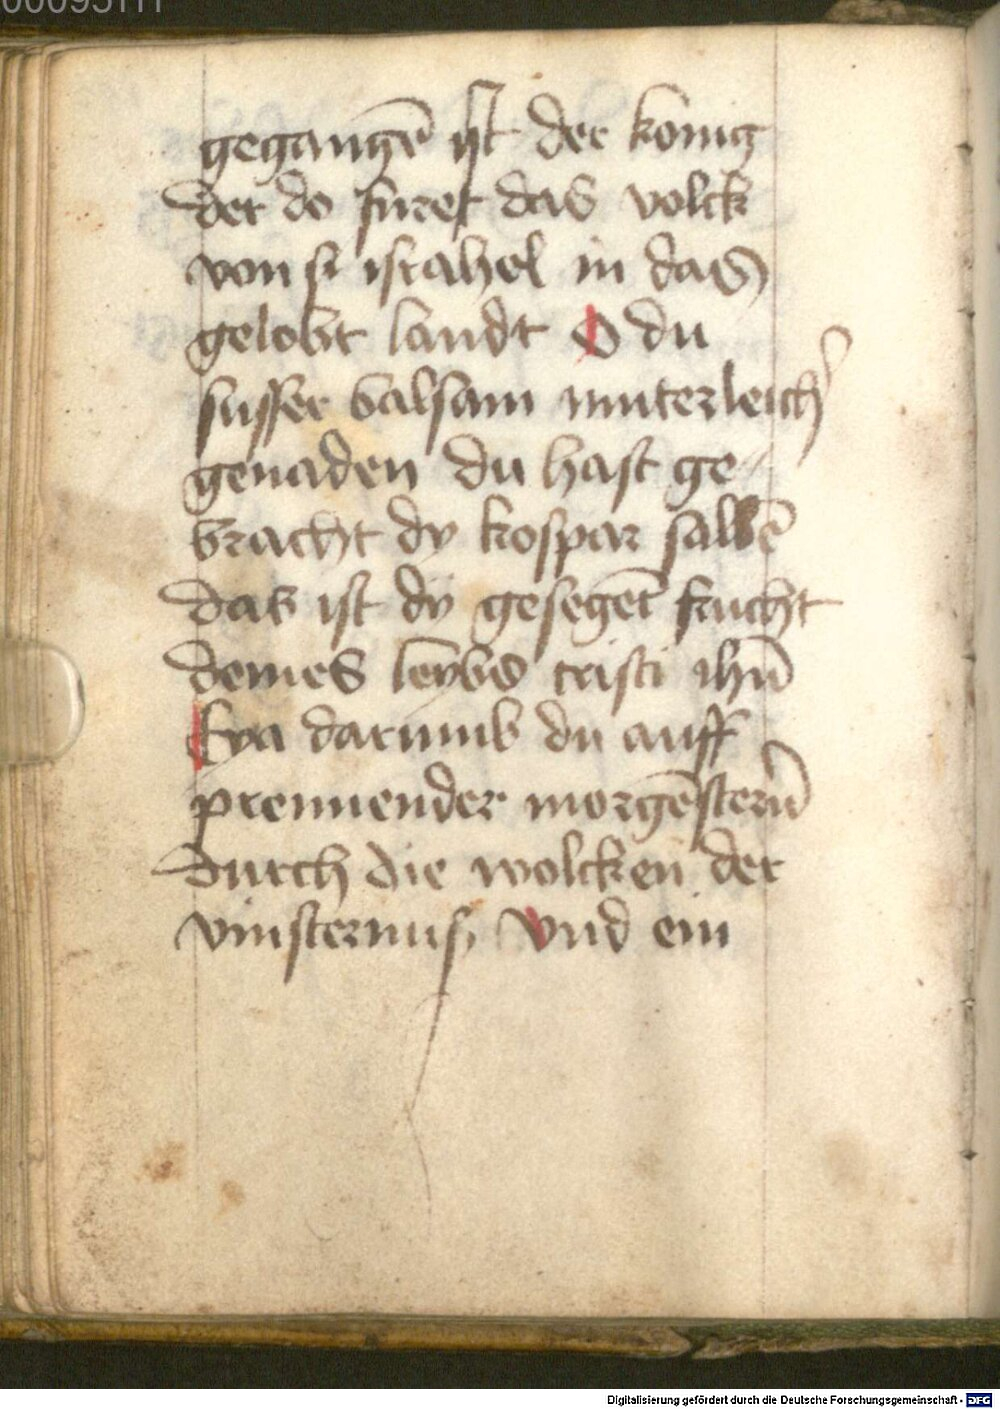 gegangē ist der konig
der do furet das volck
von israhel in das
gelobt landt O du
susser balsam muterleicher
genaden du hast ge
bracht dy kospar salbē
das ist dy gesegēt frucht
deines leybs cristi ihū
Eya darumb du auff
prennender morgēsterū
durch die wolcken der
vinsternuß vnd ein
Digitalisierung gefördert durch die Deutsche Forschungsgemeinschaft - DFG